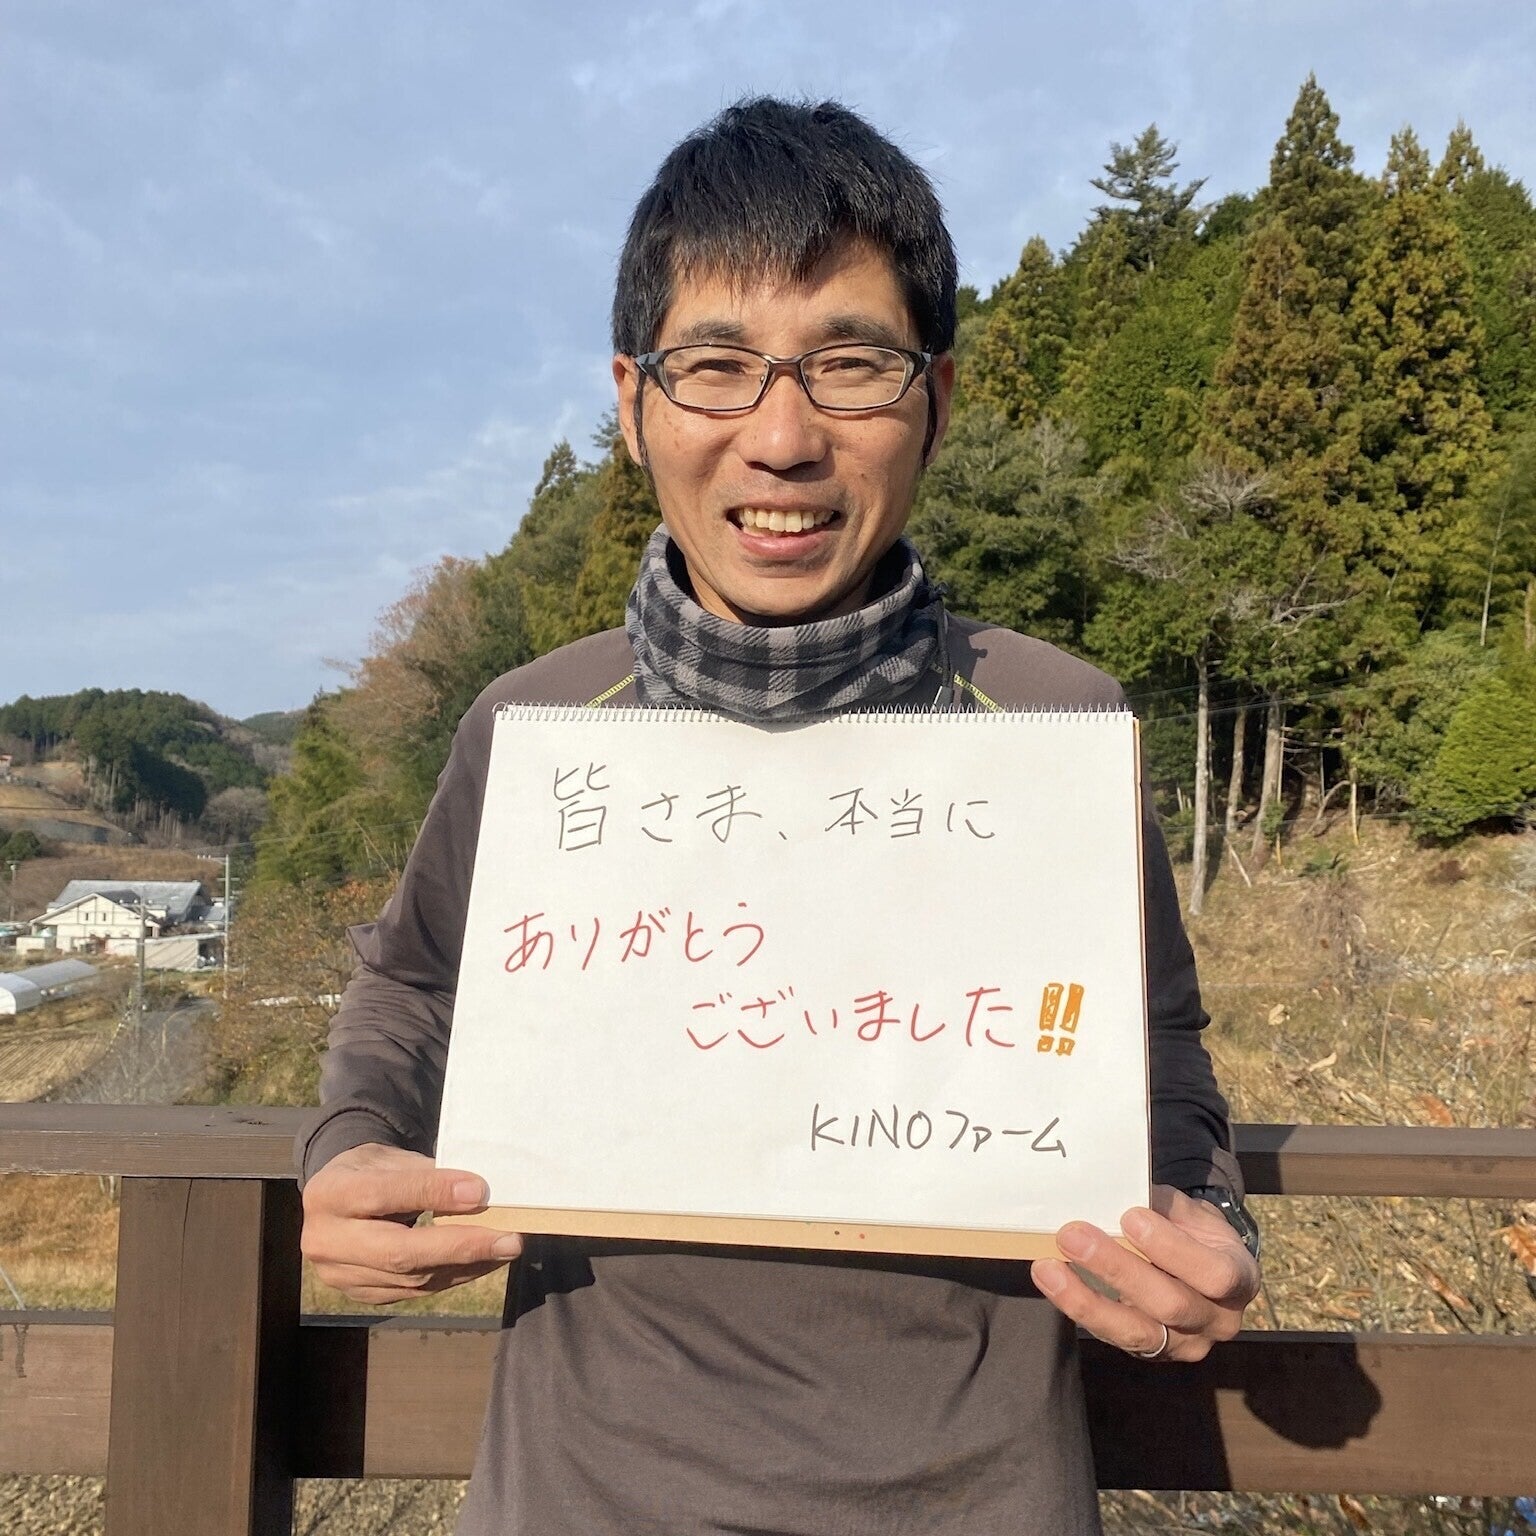 皆さま、本当に
ありがとう
ございました!!
KINOファーム